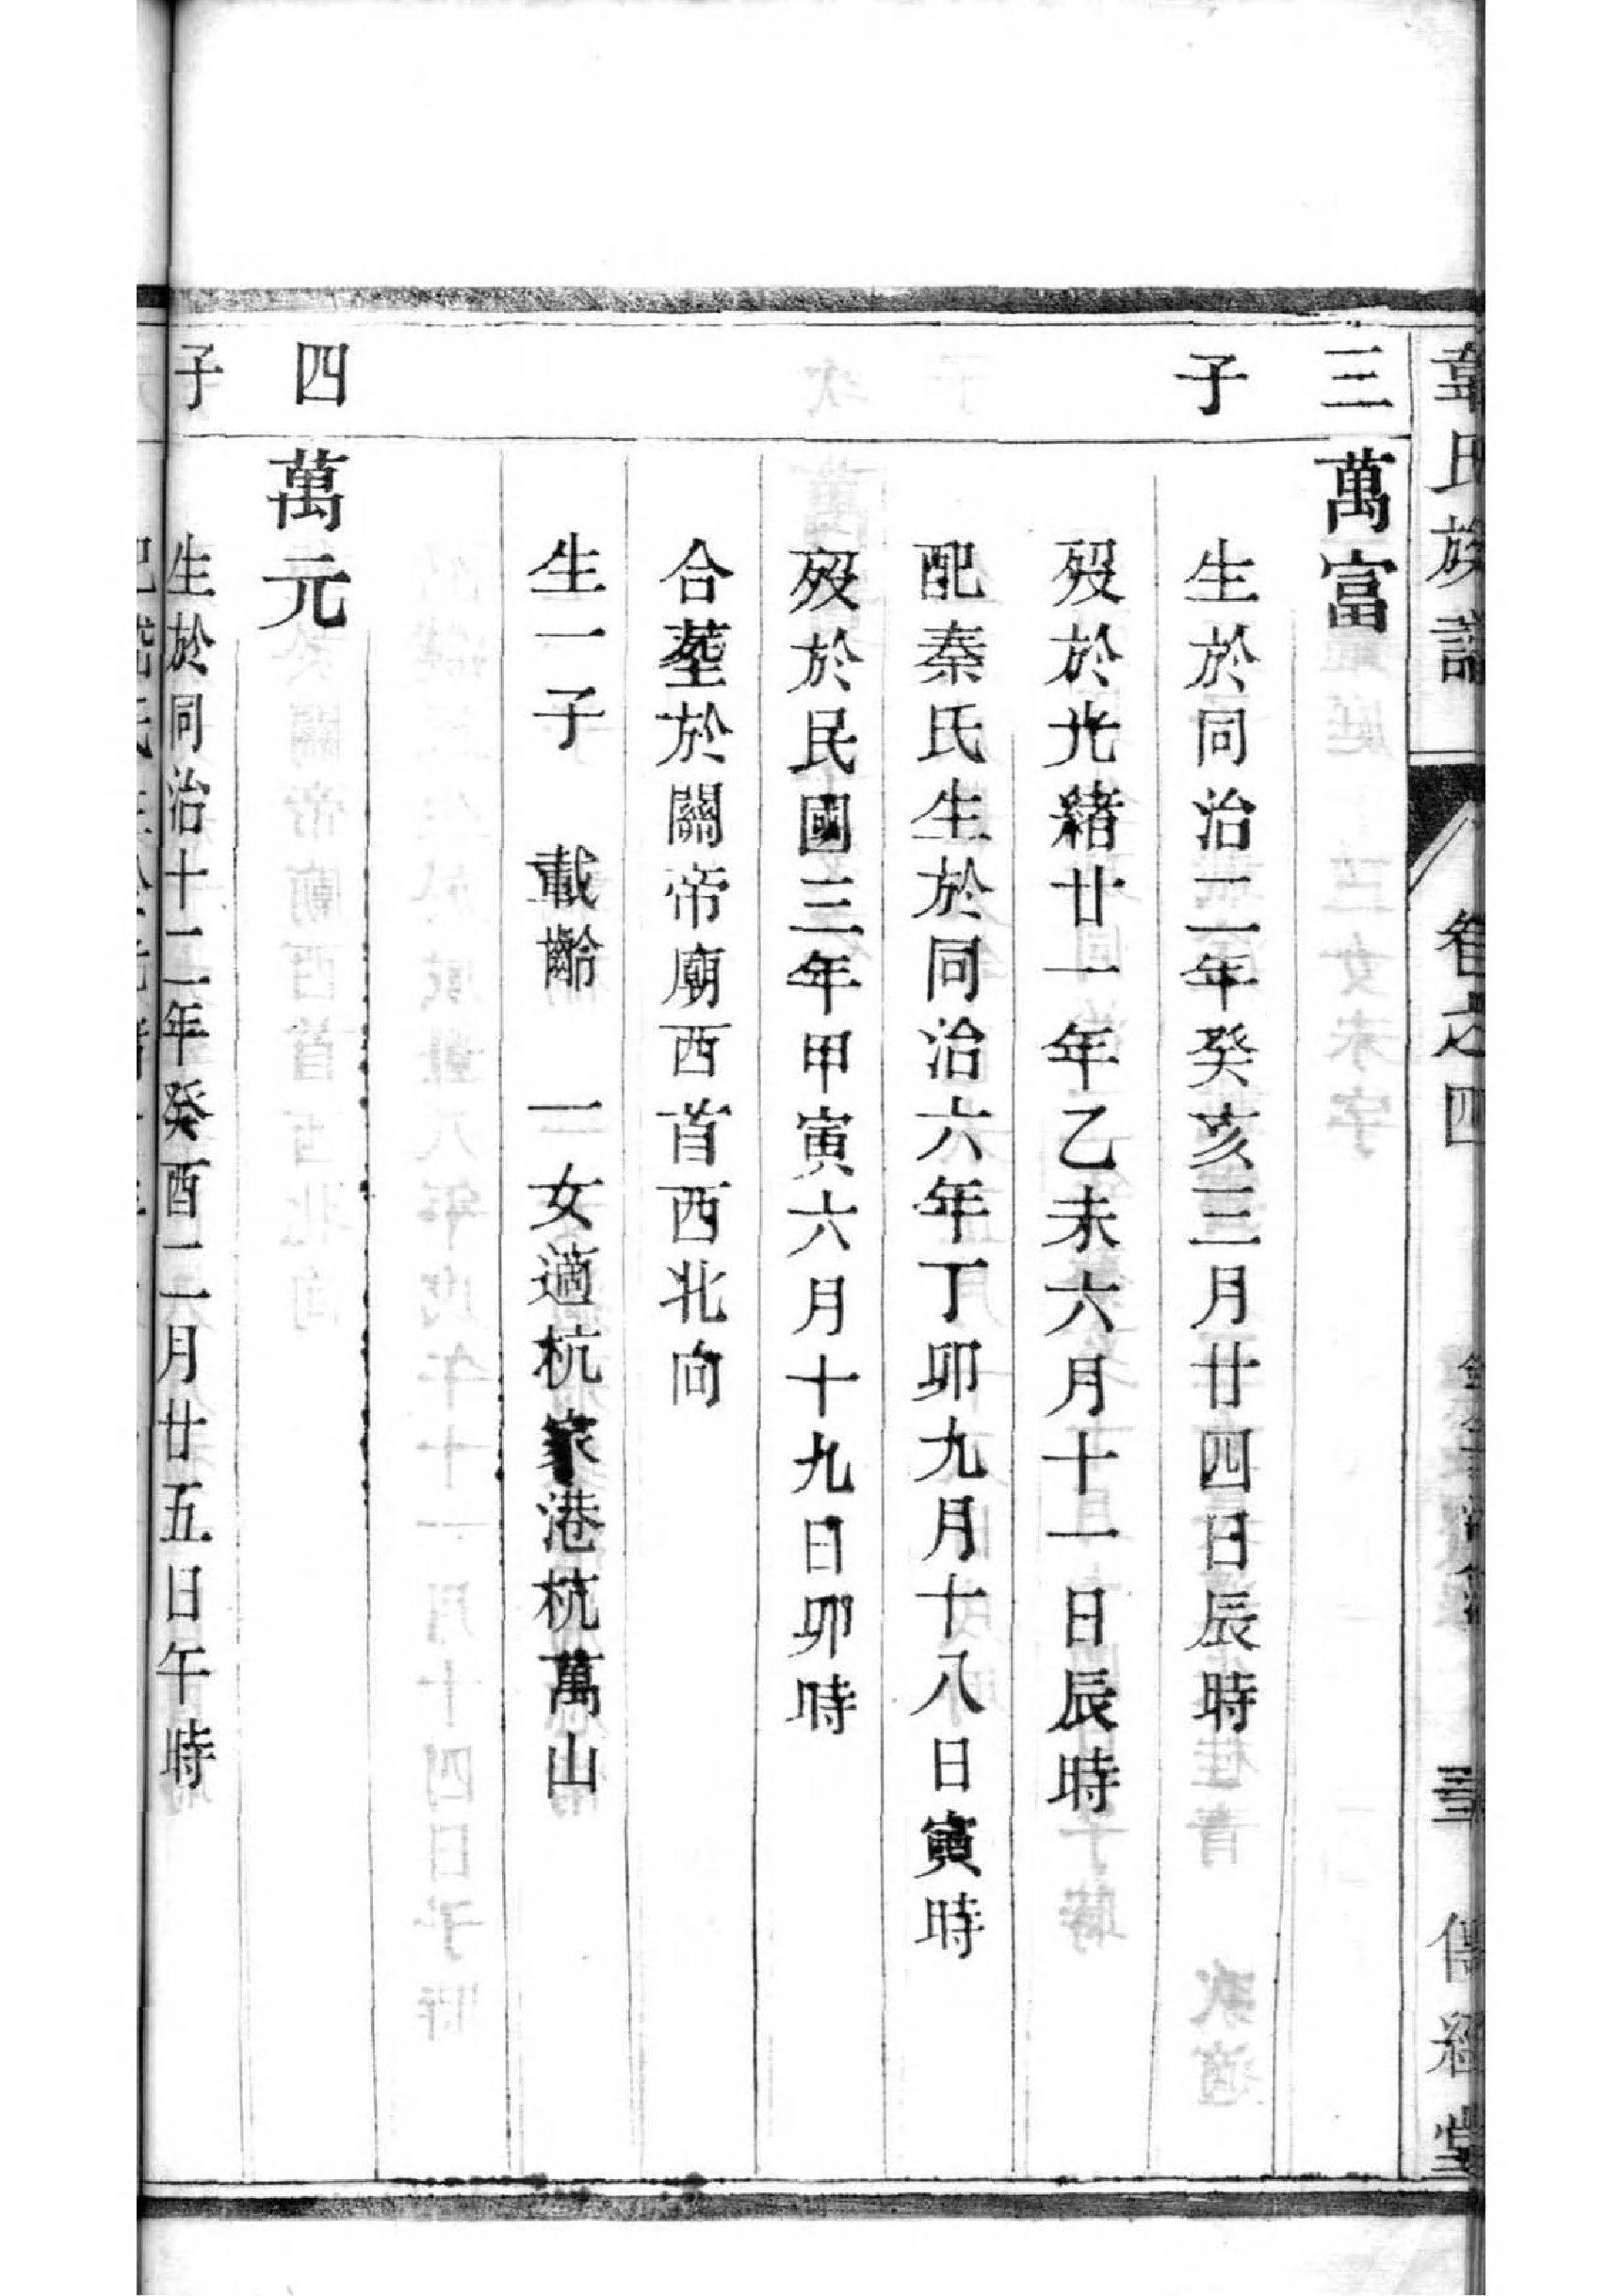 韋氏族譜 卷之四 傳經堂
三子
萬富
生於同治二年癸亥三月廿四日辰時
歿於光緒廿一年乙未六月十一日辰時
配秦氏生於同治六年丁卯九月十八日寅時
歿於民國三年甲寅六月十九日卯時
合塟於關帝廟西首西北向
生一子 載齡 一女適杭家港杭萬山
四子
萬元
生於同治十二年癸酉二月廿五日午時